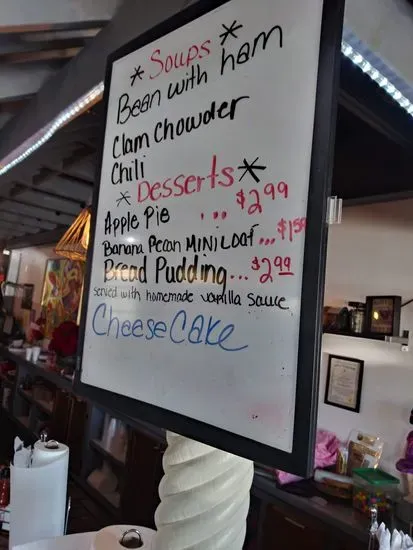 * Soups *
Bean with ham
Clam Chowder
Chili
* Desserts *
Apple Pie ... $2.99
Banana Pecan MINI LOAF ... $1.59
Bread Pudding ... $2.99
served with homemade vanilla sauce
Cheese Cake